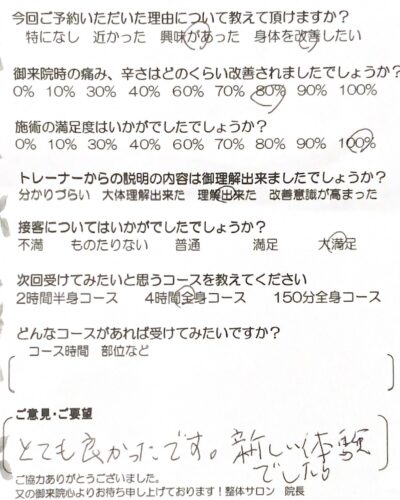 今回ご予約いただいた理由について教えて頂けますか？
特になし 近かった 興味があった 身体を改善したい
御来院時の痛み、辛さはどのくらい改善されましたでしょうか？
0% 10% 30% 40% 60% 70% 80% 90% 100%
施術の満足度はいかがでしたでしょうか？
0% 10% 30% 40% 60% 70% 80% 90% 100%
トレーナーからの説明の内容は御理解出来ましたでしょうか？
分かりづらい 大体理解出来た 理解出来た 改善意識が高まった
接客についてはいかがでしたでしょうか？
不満 ものたりない 普通 満足 大満足
次回受けてみたいと思うコースを教えてください
2時間半身コース 4時間全身コース 150分全身コース
どんなコースがあれば受けてみたいですか？
コース時間 部位など
ご意見・ご要望
とても良かったです。新しい体験
でした
ご協力ありがとうございました。
又の御来院心よりお待ち申し上げております！整体サロン 院長